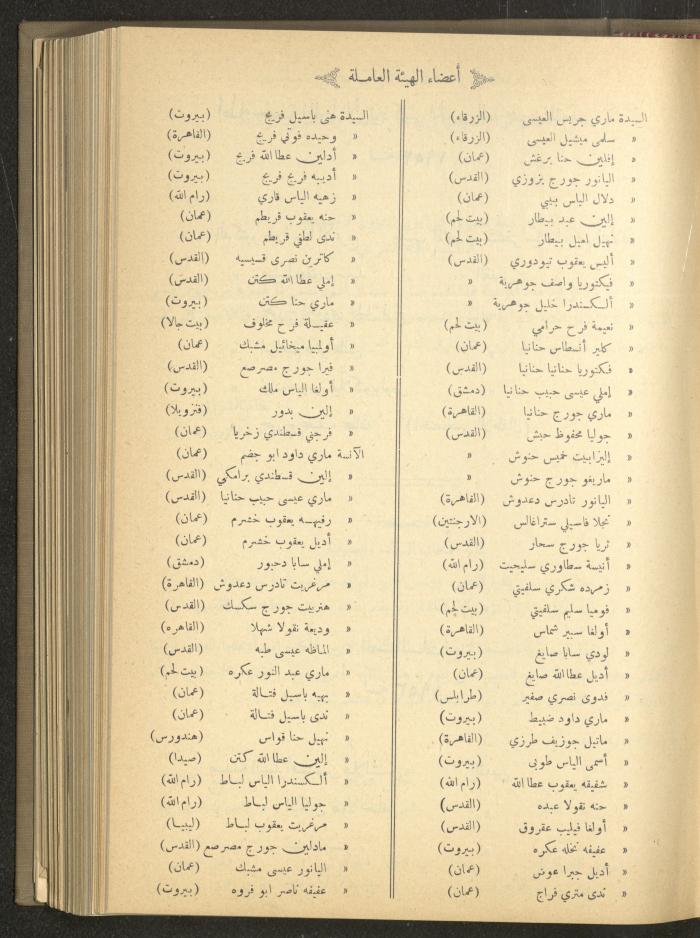 أعضاء الهيئة العاملة
السيدة ماري جريس العيسى (الزرقاء)
« سلمى ميشيل العيسى (الزرقاء)
« إفلين حنا برغش (عمان)
« اليانور جورج بزوزي (القدس)
« دلال الياس بيبي (عمان)
« إلين عبد بيطار (بيت لحم)
« نهيل اميل بيطار (بيت لحم)
« أليس يعقوب تيودوري (القدس)
« فيكتوريا واصف جوهرية «
« ألكسندرا خليل جوهرية «
« نعيمة فرح حرامي (بيت لحم)
« كلير أنسطاس حنانيا (عمان)
« فكتوريا حنانيا حنانيا (القدس)
« إملي عيسى حبيب حنانيا (دمشق)
« ماري جورج حنانيا (القاهرة)
« جوليا محفوظ حبش (القدس)
« إليزابيت خميس حنوش «
« ماريغو جورج حنوش «
« اليانور تادرس دعدوش (القاهرة)
« نجلا فاسيلي ستراغالس (الارجنتين)
« ثريا جورج سحار (القدس)
« أنيسة سطاوري سليحيت (رام الله)
« زمرده شكري سلفيتي (عمان)
« فوميا سليم سلفيتي (بيت لحم)
« أولغا سبير شماس (القاهرة)
« لودي سابا صايغ (بيروت)
« أديل عطا الله صايغ (عمان)
« فدوى نصري صفير (طرابلس)
« ماري داود ضبيط (بيروت)
« ماتيل جوزيف طرزي (القاهرة)
« أسمى الياس طوبى (بيروت)
« شفيقه يعقوب عطا الله (رام الله)
« حنه نقولا عبده (القدس)
« أولغا فيليب عقروق (القدس)
« عفيفه نخله عكره (بيروت)
« أديل جبرا عوض (عمان)
« ندى متري فراج (عمان)
السيدة هنى باسيل فريج (بيروت)
« وحيده فوتي فريج (القاهرة)
« أدلين عطا الله فريج (بيروت)
« أديبه فريج فريج (بيروت)
« زهيه الياس قاري (رام الله)
« حنه يعقوب قريطم (عمان)
« ندى لطفي قريطم (عمان)
« كاترين نصري قسيسيه (القدس)
« إملي عطا الله كتن (القدس)
« ماري حنا كتن (بيروت)
« عقيلة فرح مخلوف (بيت جالا)
« أولمبيا ميخائيل مشبك (عمان)
« فيرا جورج مصرصع (القدس)
« أولغا الياس ملك (بيروت)
« إلين بدور (فنزويلا)
« فرجني قسطندي زخريا (عمان)
الآنسة ماري داود ابو جضم (عمان)
« إلين قسطندي برامكي (القدس)
« ماري عيسى حبيب حنانيا (القدس)
« رفيهه يعقوب خشرم (عمان)
« أديل يعقوب خشرم (عمان)
« إملي سابا دحبور (دمشق)
« مرغريت تادرس دعدوش (القاهرة)
« هنرييت جورج سكسك (القدس)
« وديعة نقولا شهلا (القاهره)
« الماظه عيسى طبه (القدس)
« ماري عبد النور عكره (بيت لحم)
« بهيه باسيل فتالة (عمان)
« ندى باسيل فتالة (عمان)
« نهيل حنا قواس (هندورس)
« إلين عطا الله كتن (صيدا)
« ألكسندرا الياس لباط (رام الله)
« جوليا الياس لباط (رام الله)
« مرغريت يعقوب لباط (ليبيا)
« مادلين جورج مصرصع (القدس)
« اليانور عيسى مشبك (عمان)
« عفيفه ناصر ابو فروه (بيروت)